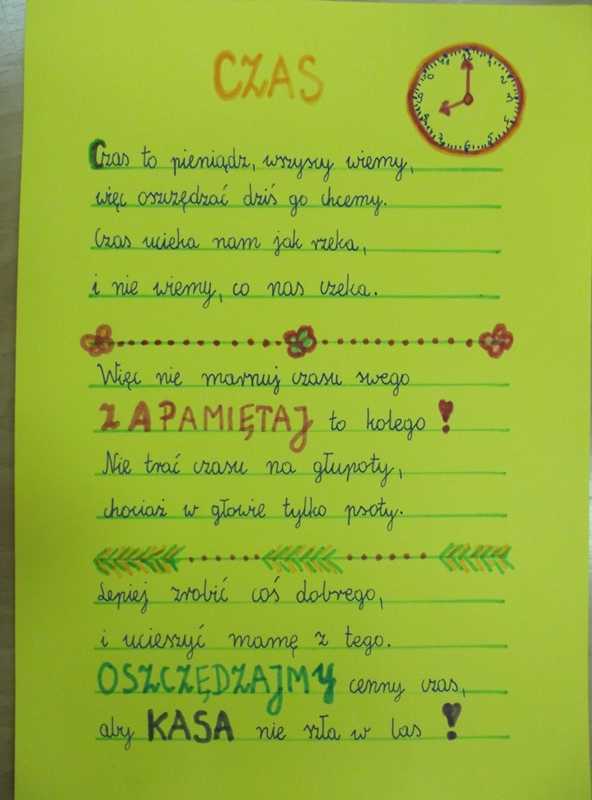 CZAS
Czas to pieniądz, wszyscy wiemy,
więc oszczędzać dziś go chcemy.
Czas ucieka nam jak rzeka,
i nie wiemy, co nas czeka.
Więc nie marnuj czasu swego
ZAPAMIĘTAJ to kolego !
Nie trać czasu na głupoty,
chociaż w głowie tylko psoty.
Lepiej zrobić coś dobrego,
i ucieszyć mamę z tego.
OSZCZĘDZAJMY cenny czas,
aby KASA nie szła w las !